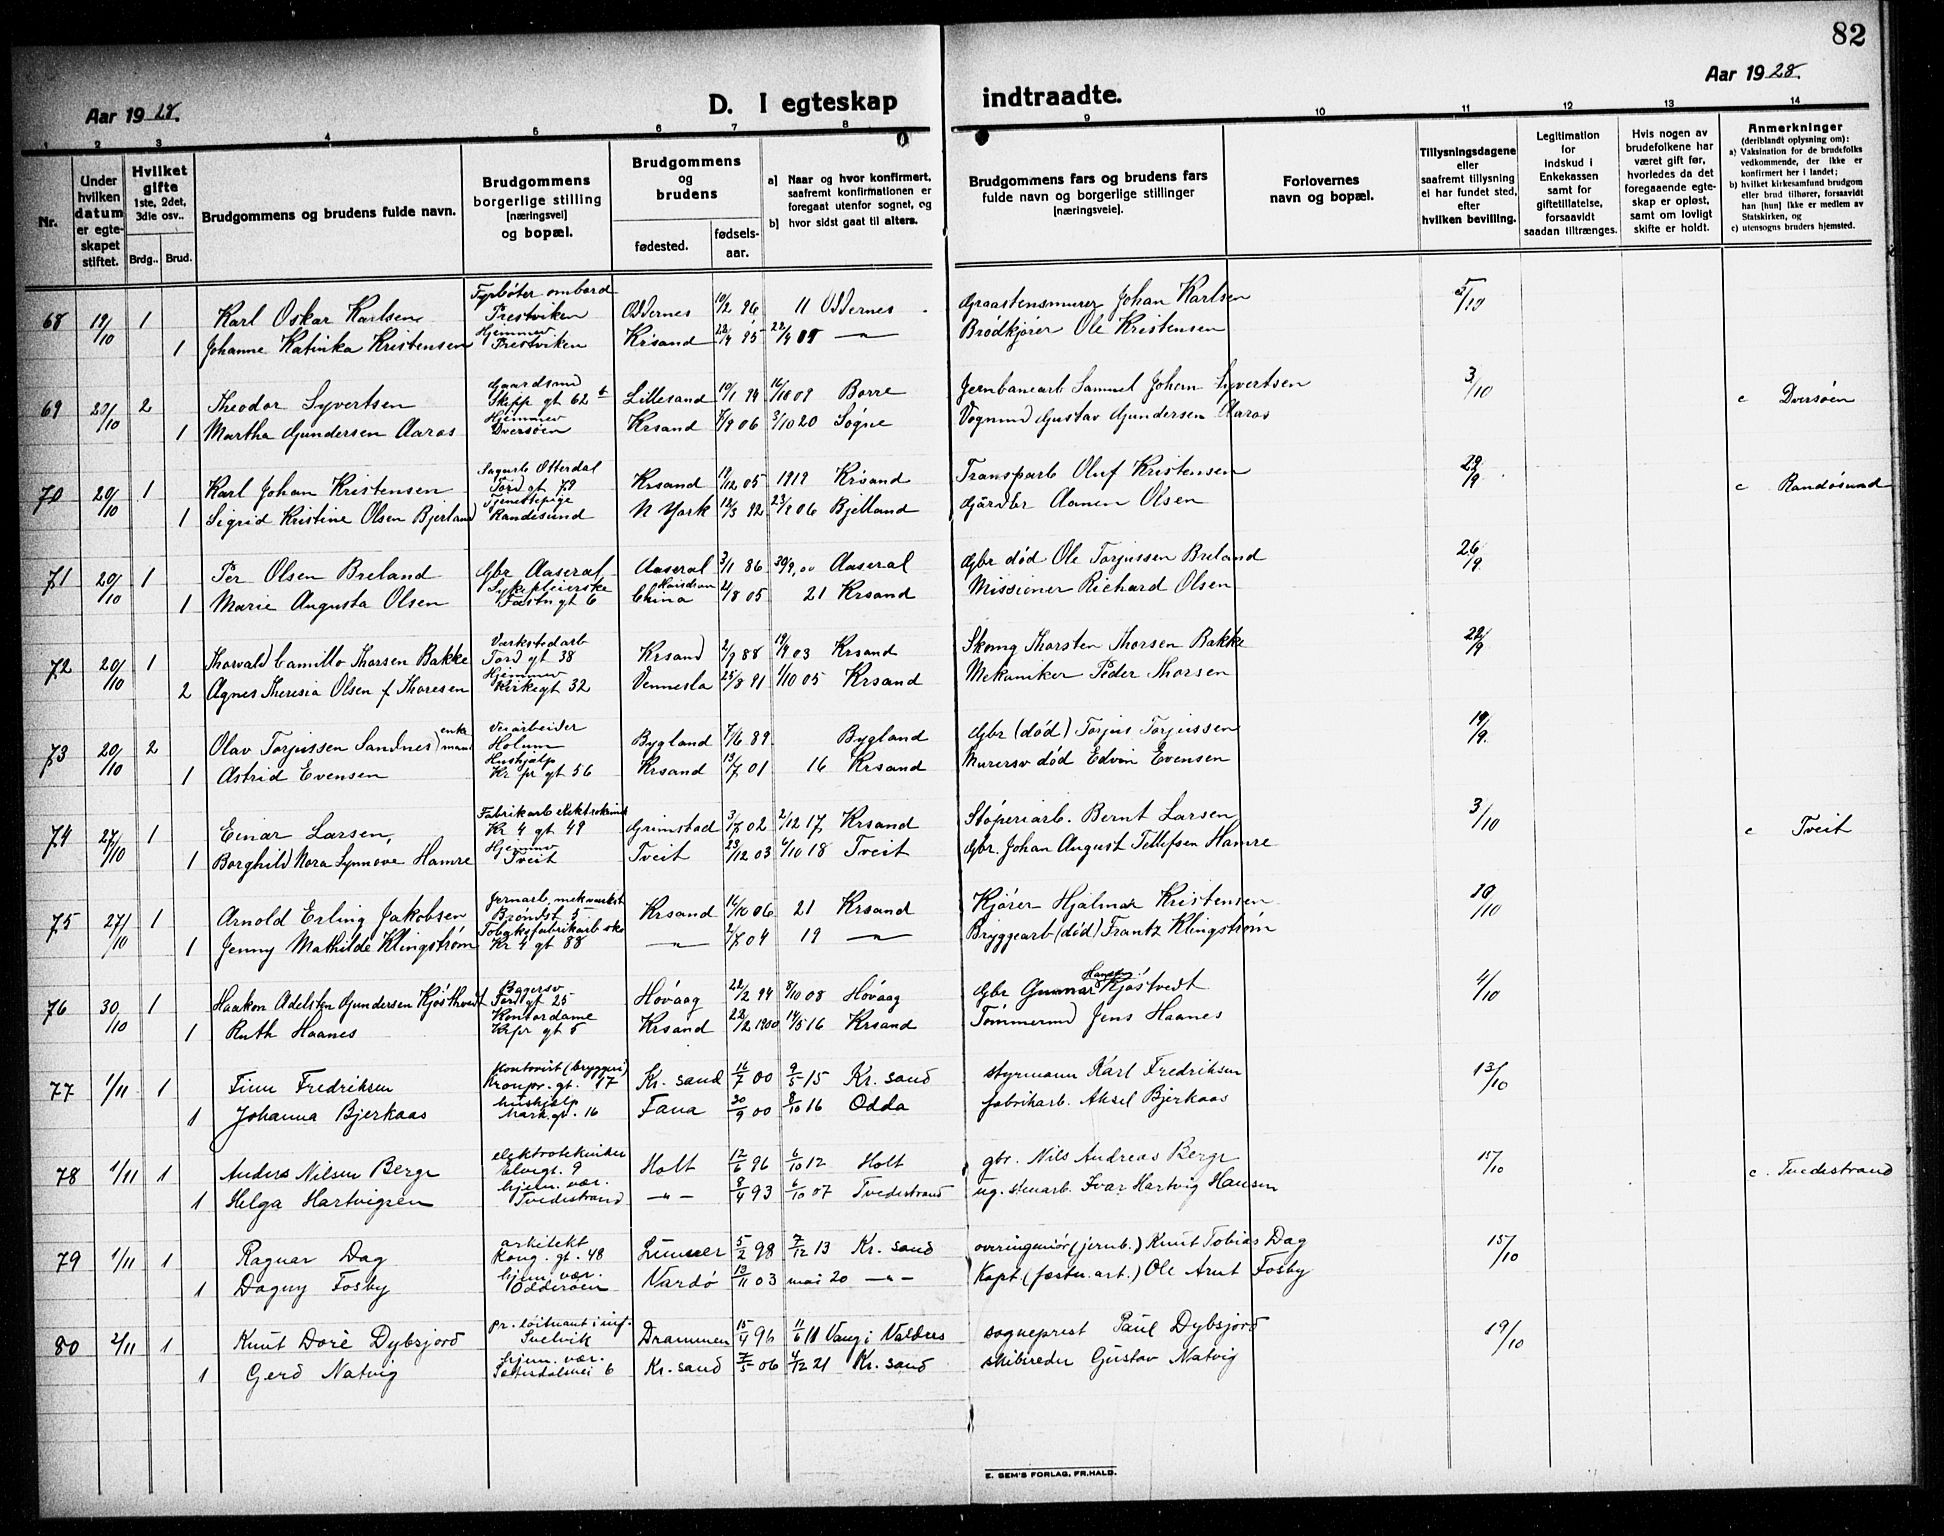 82
Aar 1928.
D. I egteskap indtraadte.
Aar 1928.
1 2 3 4 5 6 7 8 9 10 11 12 13 14
Nr.
Under hvilken datum er egteskapet stiftet.
Hvilket gifte 1ste, 2det, 3die osv..
Brdg.. Brud.
Brudgommens og brudens fulde navn.
Brudgommens borgerlige stilling [næringsvei] og bopæl.
Brudgommens og brudens
fødested. fødsels-aar.
a) Naar og hvor konfirmert, saafremt konfirmationen er foregaat utenfor sognet, og
b) hvor sidst gaat til alters.
Brudgommens fars og brudens fars fulde navn og borgerlige stillinger [næringsveie].
Forlovernes navn og bopæl.
Tillysningsdagene eller saafremt tillysning ei har fundet sted, efter hvilken bevilling.
Legitimation for indskud i Enkekassen samt for giftetillatelse, forsaavidt saadan tiltrænges.
Hvis nogen av brudefolkene har været gift før, hvorledes da det foregaaende egteskap er opløst, samt om lovligt skifte er holdt.
Anmerkninger (deriblandt oplysning om):
a) Vaksination for de brudefolks vedkommende, der ikke er konfirmert her i landet;
b) hvilket kirkesamfund brudgom eller brud tilhører, forsaavidt han [hun] ikke er medlem av Statskirken, og
c) utensogns bruders hjemsted.
Fyrbøter ombord
68 19/10 1 Karl Oskar Karlsen Prestviken Oddernes 19/2 96 11 Oddernes Graastensmurer Johan Karlsen
Hjemmev
1 Johanne Katinka Kristensen Prestviken Krsand 95 Brødkjører Ole Kristensen
Gaardsmd
69 20/10 2 Theodor Syvertsen Skipp gt 62 b Lillesand 19/1 94 16/10 09 Borre Jernbanearb Samuel Johan Syvertsen 3/10 c Dversøen
Hjemmev
1 Martha Gundersen Aaros Dversøen Krsand 06 3/10 20 Søgne Vognmd Gustav Gundersen Aaros
Sagarb Otterdal
70 20/10 1 Karl Johan Kristensen Tord gt 79 Krsand 12/12 05 1919 Krsand Transparb Oluf Kristensen 29/9 c Randøsund
Tjenestepige
1 Sigrid Kristine Olsen Bjerland Randøsund N York 12/3 92 23/9 06 Bjelland Gårdbr Aanen Olsen
71 20/10 1 Per Olsen Breland Gbr Aaseral Aaseral 3/1 86 30/9 00 Aaseral Gbr død Ole Torjussen Breland 26/9
Sykepleierske
1 Marie Augusta Olsen Fæstn gt 6 China 2/8 05 21 Krsand Missionær Richard Olsen
Værkstedarb
72 20/10 1 Thorvald Camillo Thorsen Bakke Tord gt 38 Krsand 2/9 88 19/9 03 Krsand Skomg Thorsten Thorsen Bakke 22/9
Hjemmev
2 Agnes Theresia Olsen f Thoresen Kirkegt 32 Vennesla 25/8 91 1/10 05 Krsand Mekaniker Peder Thorsen
Veiarbeider
73 20/10 2 Olav Torjussen Sandnes (enkemand Holum Bygland 7/6 89 Bygland Gbr (død) Torjus Torjussen 19/9
Hushjælp
1 Astrid Evensen Kr pr gt 56 Krsand 13/7 01 16 Krsand Murersv død Edvin Evensen
Fabrikarb elektrokemisk
74 27/10 1 Einar Larsen, Kr 4 gt 49 Grimstad 3/7 02 2/12 17 Krsand Støperiarb. Bernt Larsen 3/10 c Tveit
Hjemmev
1 Borghild Nora Synnøve Hamre Tveit Tveit 23/12 03 6/10 18 Tveit Gbr. Johan August Tellefsen Hamre
Jernarb, mek verkst
75 27/10 1 Arnold Erling Jakobsen Brøndst 5 Krsand 14/10 06 21 Krsand Kjører Hjalmar Kristensen 10
Tobaksfabrikarb ske
1 Jenny Mathilde Klingstrøm Kr 4 gt 88 —"— 2/7 04 19 —"— Bryggearb (død) Frantz Klingstrøm
Bagersv
76 30/10 1 Haakon Adelsten Gundersen Kjøsthvedt Tord gt 25 Høvaag 22/2 94 8/10 08 Høvaag Gbr Gunnar Hansen Kjøstvedt 4/10
Kontordame
1 Ruth Haanes Kr pr gt 5 Krsand 22/2 1900 14/5 16 Krsand Tømmermd Jens Haanes
Kontorist (bryggeri)
77 1/11 1 Finn Fredriksen Kronpr. gt. 17 Kr. sand 16/7 00 9/5 15 Kr. sand styrmann Karl Fredriksen 13/10
hushjelp
1 Johanna Bjerkaas Mark. gt. 16 Fana 30/9 00 8/10 16 Odda fabrikarb. Aksel Bjerkaas
elektrotekniker
78 1/11 1 Anders Nilsen Berge Elvegt. 9 Holt 12/6 96 6/10 12 Holt gbr. Nils Andreas Berge 15/10 c. Tvedestrand
hjem. vær.
1 Helga Hartvigsen Tvedestrand —"— 8/4 93 6/10 07 Tvedestrand stenarb. Ivar Hartvig Hansen
arkitekt
79 1/11 1 Ragnar Dag Kong. gt. 48 5/2 98 7/12 13 Kr. sand overingeniør (jernb.) Knut Tobias Dag 15/10
hjem. vær.
1 Dagny Fosby Odderøen Vardø 13/11 03 mai 20 —"— Kapt. (fæstn. art.) Ole Arnt Fosby
pr. løitnant i inf.
80 2/11 1 Knut Dorè Dybsjord Svelvik Drammen 15/4 96 11/6 11 Vang i Valdres sogneprest Paul Dybsjord 19/10
hjem. vær.
1 Gerd Natvig Setesdalsvei 6 Kr. sand 7/5 06 4/12 21 Kr. sand skibsreder Gustav Natvig
E. SEM'S FORLAG, FR.HALD.